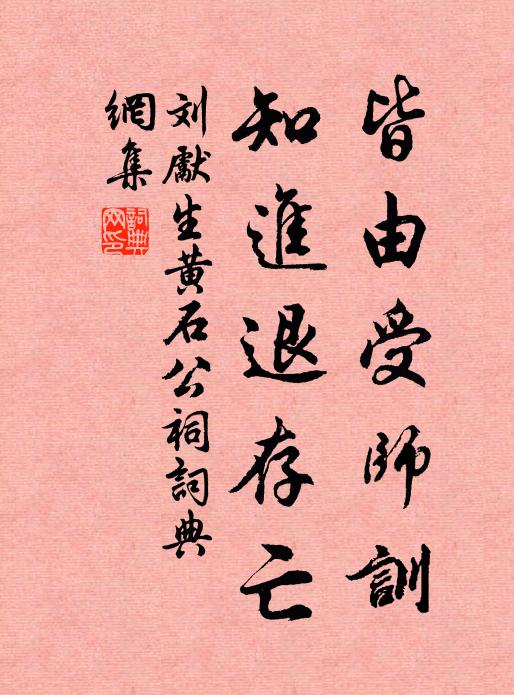 皆由受師訓
知進退存亡
刘獻生黄石公祠詞典
網集
詞典网印